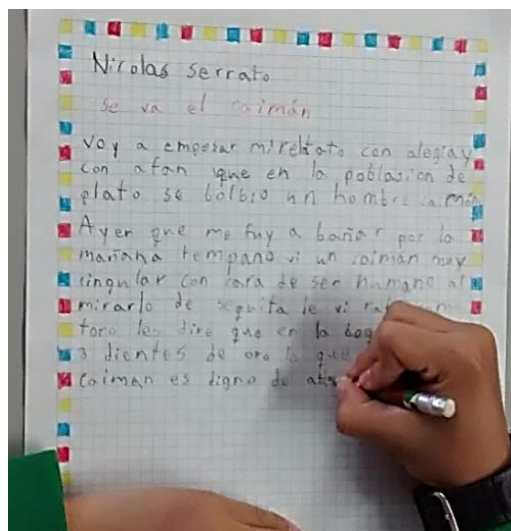 Nicolas serrato
se va el caimán
voy a empesar mi reltato con alegia y
con afan que en la poblasion de
plato se bolbio un hombre caimán
Ayer que me fuy a bañar por la
mañana tempano vi un caimán muy
cingular con cara de ser humano al
mirarlo de le vi
toro les dire que en la
3 dientes de oro la que
caiman es digno de